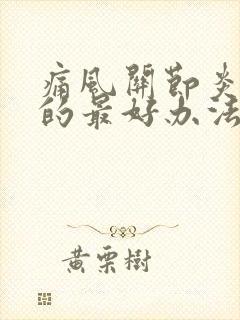 痛風關節炎
的最好办法
黄栗樹